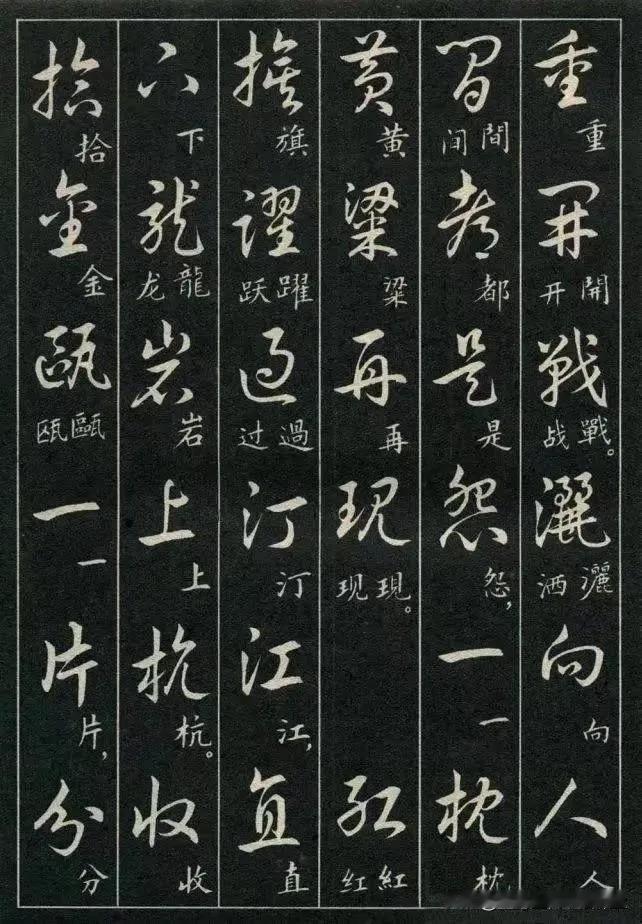 重開戰灑向人
重 開开 戰战。 灑洒 向 人
間都是怨一枕
間间 都 是 怨, 一 枕
黄粱再現紅
黄 粱 再 現现。 紅红
旗躍過汀江直
旗 躍跃 過过 汀 江, 直
下龍岩上杭收
下 龍龙 岩 上 杭。 收
拾金甌一片分
拾 金 甌瓯 一 片, 分